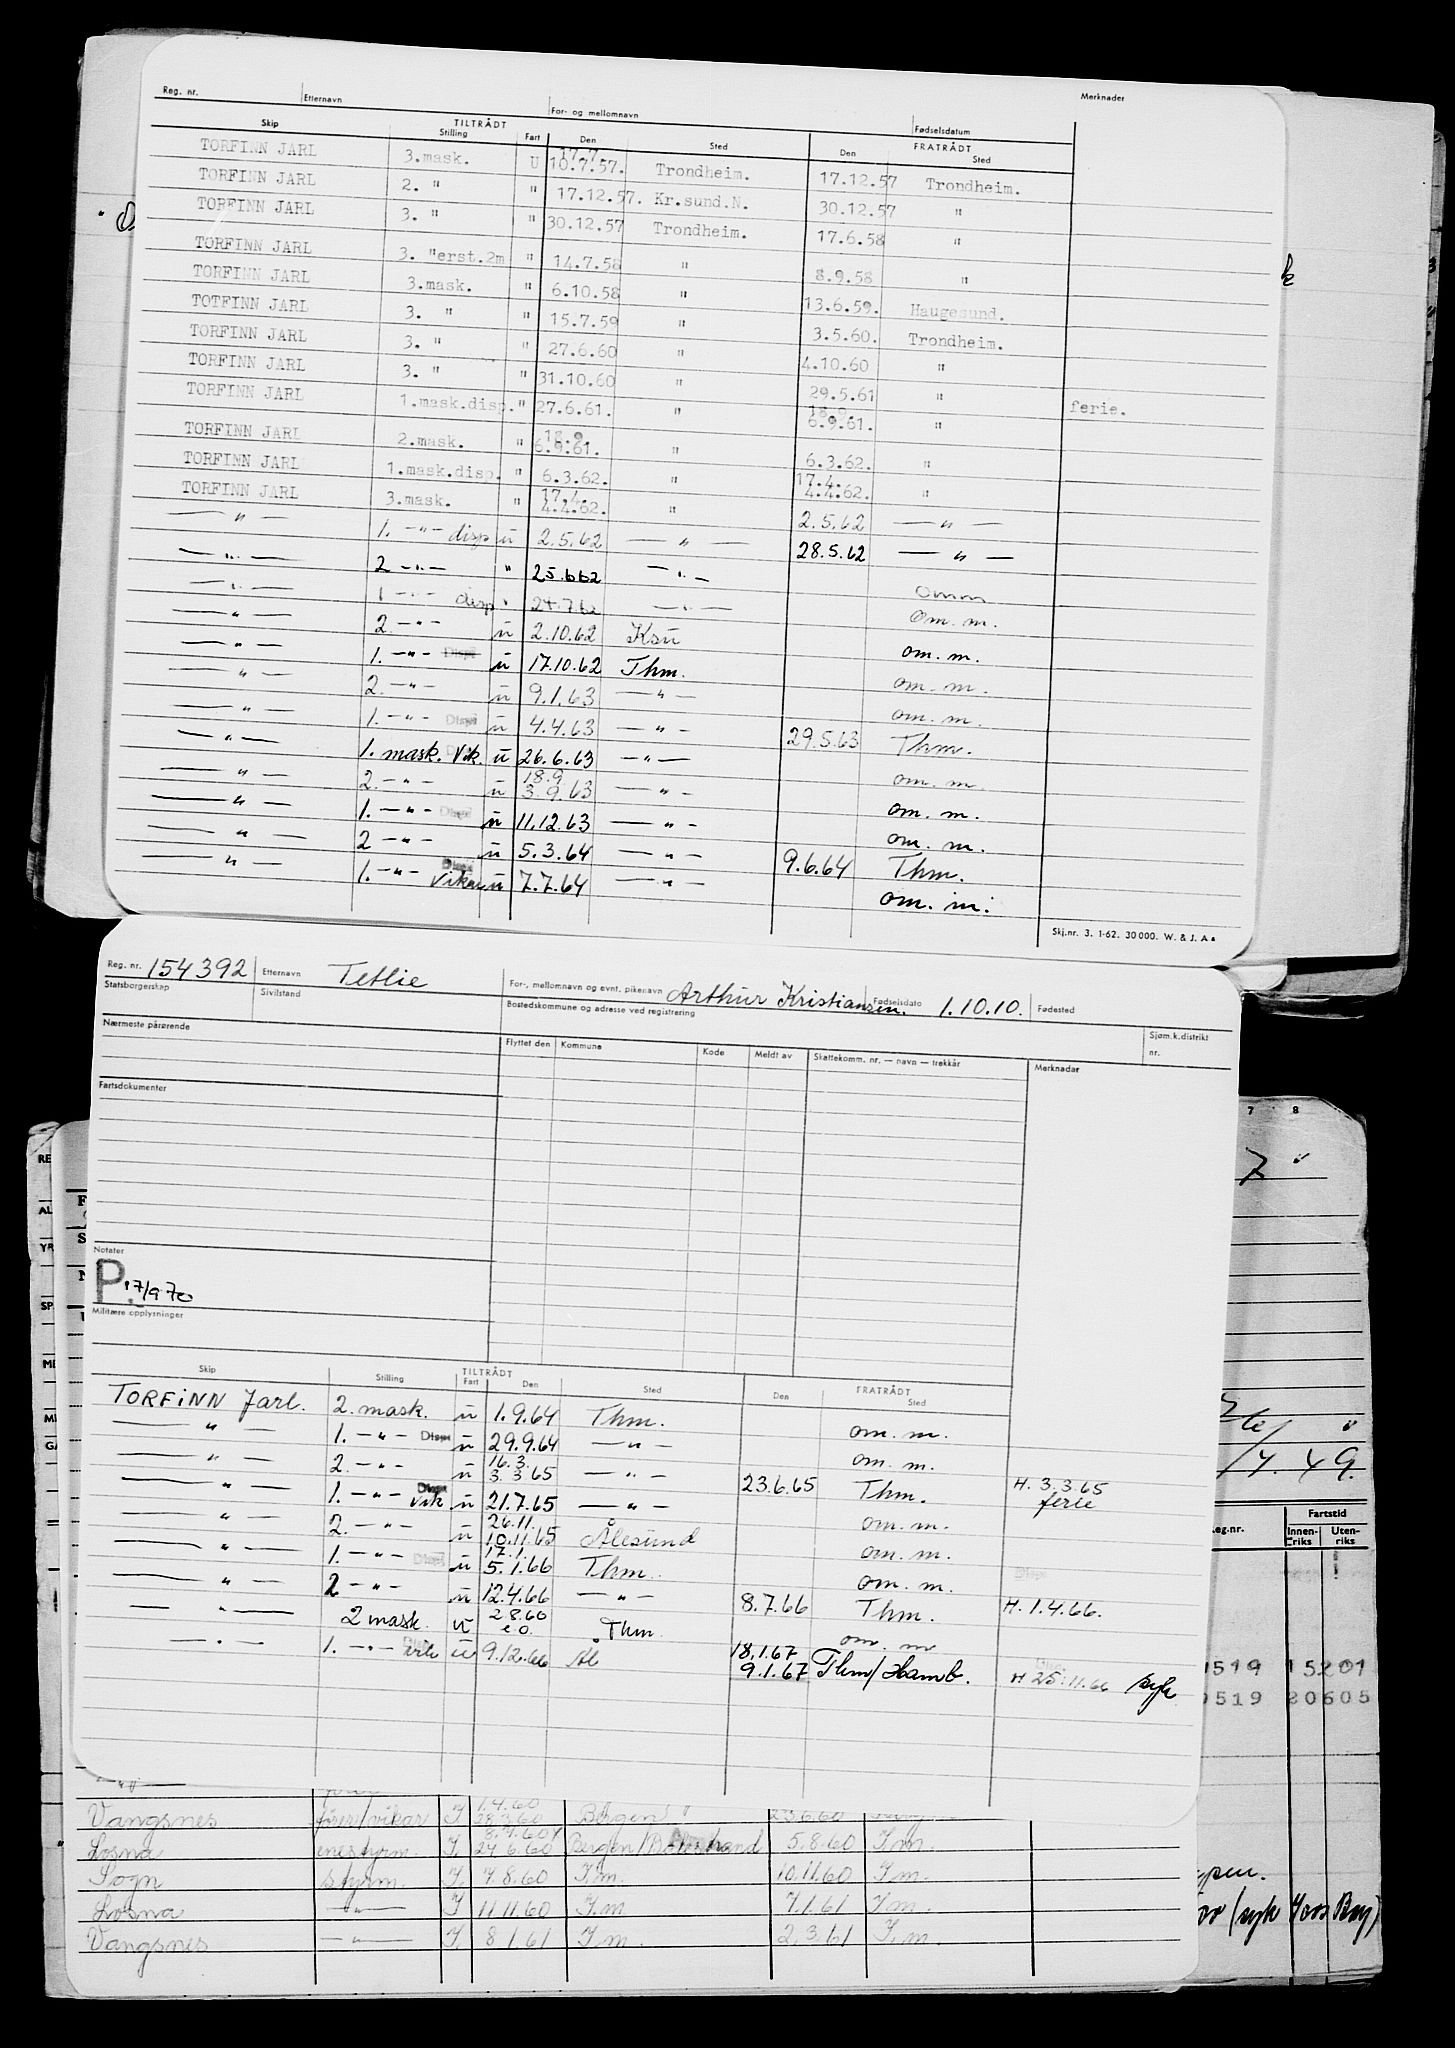 Reg. nr. Etternavn For- og mellomnavn Fødselsdatum Merknader
TILTRÅDT FRATRÅDT
Skip Stilling Fart Den Sted Den Sted
17.7.
TORFINN JARL 3.mask. U 10.7.57. Trondheim. 17.12.57 Trondheim.
TORFINN JARL 2. " " 17.12.57. Kr.sund.N. 30.12.57 "
TORFINN JARL 3. " " 30.12.57 Trondheim. 17.6.58 "
TORFINN JARL 3. "erst.2m " 14.7.58 " 8.9.58 "
TORFINN JARL 3.mask. " 6.10.58 " 13.6.59. Haugesund.
TOTFINN JARL 3. " " 15.7.59 " 3.5.60. Trondheim.
TORFINN JARL 3. " " 27.6.60 " 4.10.60 "
TORFINN JARL 3. " " 31.10.60 " 29.5.61 "
18.9.
TORFINN JARL 1.mask.disp. " 27.6.61. " 6.9.61. " ferie.
18.9.
TORFINN JARL 2.mask. " 6.9.61. " 6.3.62. "
17.4.
TORFINN JARL 1.mask.disp. " 6.3.62. " 4.4.62. "
17.4.
TORFINN JARL 3.mask. " 4.4.62. " 2.5.62 — " —
— " — 1. - " - disp u 2.5.62 — " — 28.5.62 — " —
— " — 2 - " - " 25.6.62 — " — omm
— " — 1 - " - disp " 24.7.62 — " — om. m.
— " — 2. - " - u 2.10.62 Ksu om. m.
— " — 1. - " - Disp u 17.10.62 Thm. om. m.
— " — 2. - " - u 9.1.63 — " — om. m.
— " — 1. - " - Disp u 4.4.63 — " — 29.5.63 Thm.
— " — 1. mask. Vik. u 26.6.63 — " — om. m.
18.9
— " — 2. - " - u 3.9.63 — " — om. m.
— " — 1. - " - Disp u 11.12.63 — " — om. m.
— " — 2 - " - u 5.3.64 — " — 9.6.64 Thm.
— " — 1. - " - Disp Vikar u 7.7.64 — " — om. m.
Skj.nr. 3. 1-62. 30 000. W. & J. A s
Reg. nr. 154392 Etternavn Tetlie For-, mellomnavn og evnt. pikenavn Arthur Kristiansen. Fødselsdato 1.10.10. Fødested
Statsborgerskap Sivilstand Bostedskommune og adresse ved registrering
Nærmeste pårørende Sjøm.k.distrikt
nr.
Flyttet den Kommune Kode Meldt av Skattekomm. nr. — navn — trekkår Merknader
Fartsdokumenter
Notater
P. 17/9 70
Militære opplysninger
TILTRÅDT FRATRÅDT
Skip Stilling Fart Den Sted Den Sted
TORFINN Jarl. 2. mask. u 1.9.64 Thm. om. m.
— " — 1. - " - Disp u 29.9.64 — " — om. m.
16.3.
— " — 2. - " - u 3.3 65 — " — 23.6.65 Thm. H. 3.3.65 ferie
— " — 1. - " - Disp Vik u 21.7.65 — " — om. m.
26.11.
— " — 2. - " - u 10.11.65 Ålesund om. m.
17.1.
— " — 1. - " - Disp u 5.1.66 Thm. om. m.
— " — 2 - " - u 12.4.66 — " — 8.7.66 Thm. H. 1.4.66.
— " — 2 mask. u 2 8.60 e.o. Thm om. m
18.1.67
— " — 1. - " - u 9.12.66 Ål 9.1.67 Thm/Hamb. H 25.11.66 syk
Vangsnes fører/vikar I 1.4.60 28.3.60 Bergen 23.6.60
8.7.60
Losna enestyrm. I. 24 6.60 Bergen/ 5.8.60 I m.
Sogn styrm. I. 7 8.60 I m. 10.11.60 I m.
Losna — " — I 11 11.60 I m 7.1.61 I m.
Vangsnes — " — I. 8 1 61 I m. 2.3.61 I. m.
7 8
7
7. 49.
eg.nr. Fartstid
Innen-riks Uten-riks
519 15201
519 20605
(syk Hoss Bay)